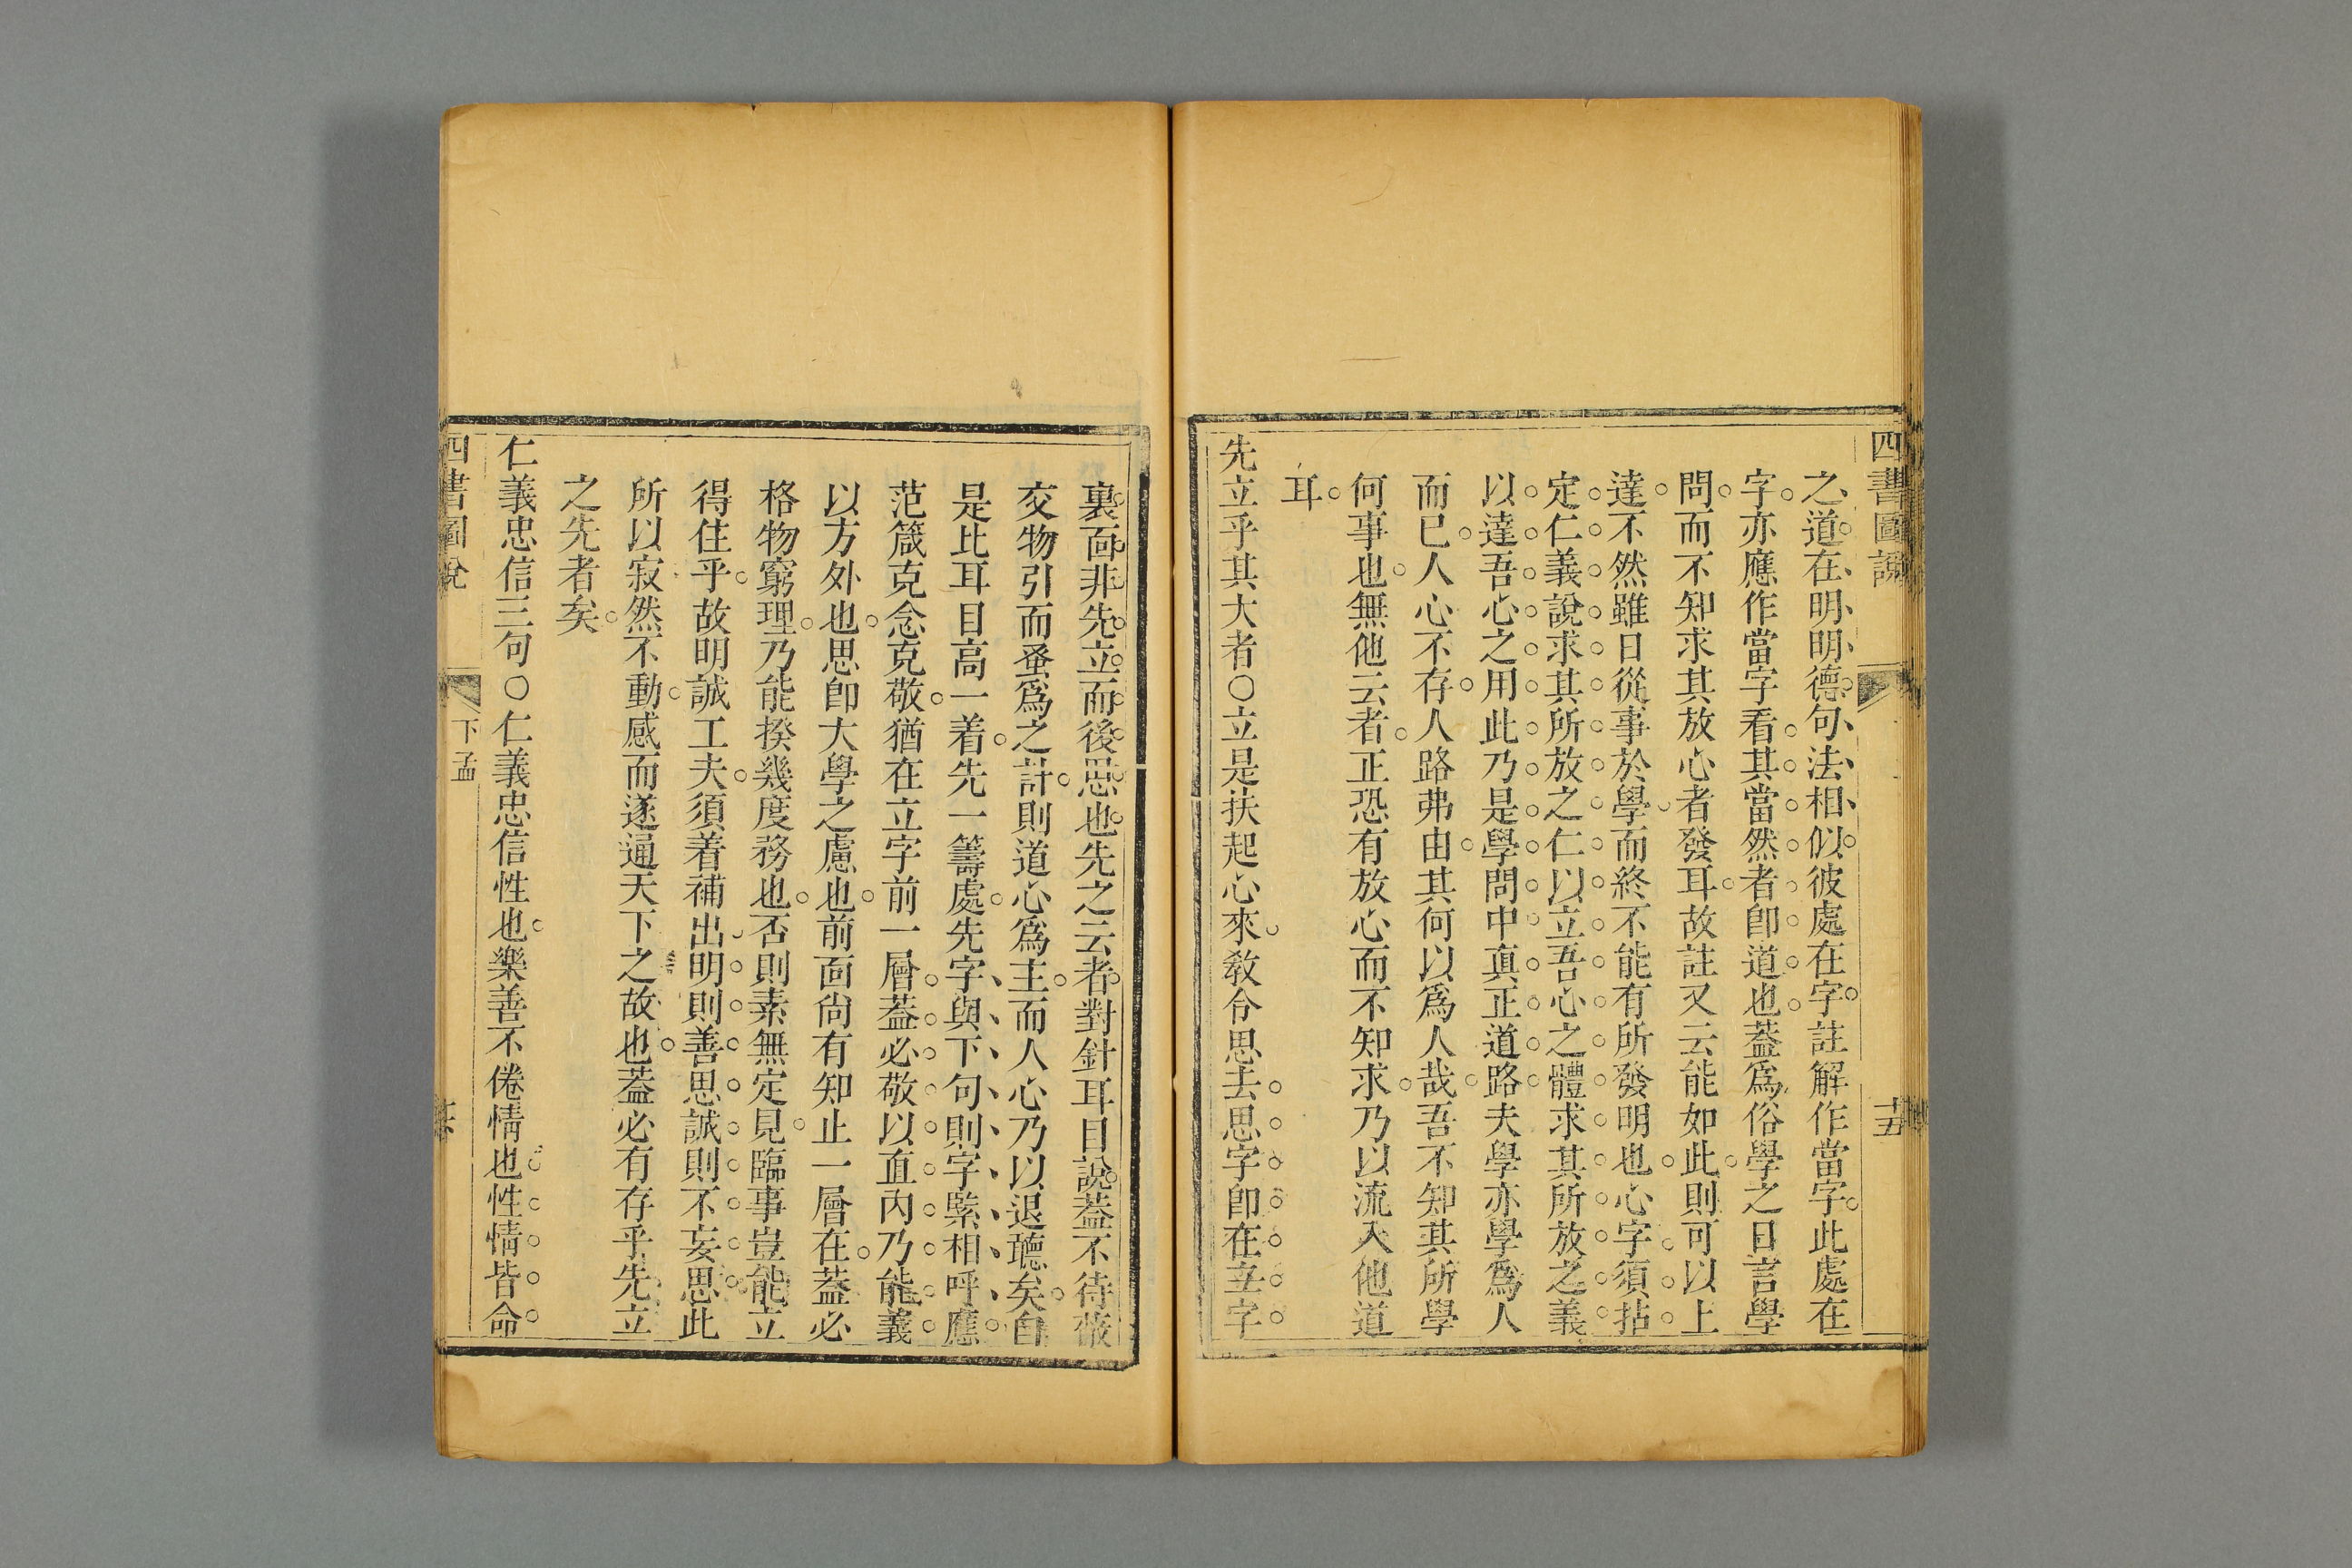 四書圖說
十五
之道在明明德句法相似彼處在字註解作當字此處在
字亦應作當字看其當然者卽道也蓋爲俗學之日言學
問而不知求其放心者發耳故註又云能如此則可以上
達不然雖日從事於學而終不能有所發明也心字須拈
定仁義說求其所放之仁以立吾心之體求其所放之義
以達吾心之用此乃是學問中真正道路夫學亦學爲人
而已人心不存人路弗由其何以爲人哉吾不知其所學
何事也無他云者正恐有放心而不知求乃以流入他道
耳
先立乎其大者○立是扶起心來教令思去思字卽在立字
裏面非先立而後思也先之云者對針耳目說蓋不待蔽
交物引而蚤爲之計則道心爲主而人心乃以退聽矣自
是比耳目高一着先一籌處先字與下句則字緊相呼應
范箴克念克敬猶在立字前一層蓋必敬以直內乃能義
以方外也思卽大學之慮也前面尚有知止一層在蓋必
格物窮理乃能揆幾度務也否則素無定見臨事豈能立
得住乎故明誠工夫須着補出明則善思誠則不妄思此
所以寂然不動感而遂通天下之故也蓋必有存乎先立
之先者矣
仁義忠信三句○仁義忠信性也樂善不倦情也性情皆命
四書圖說
下孟